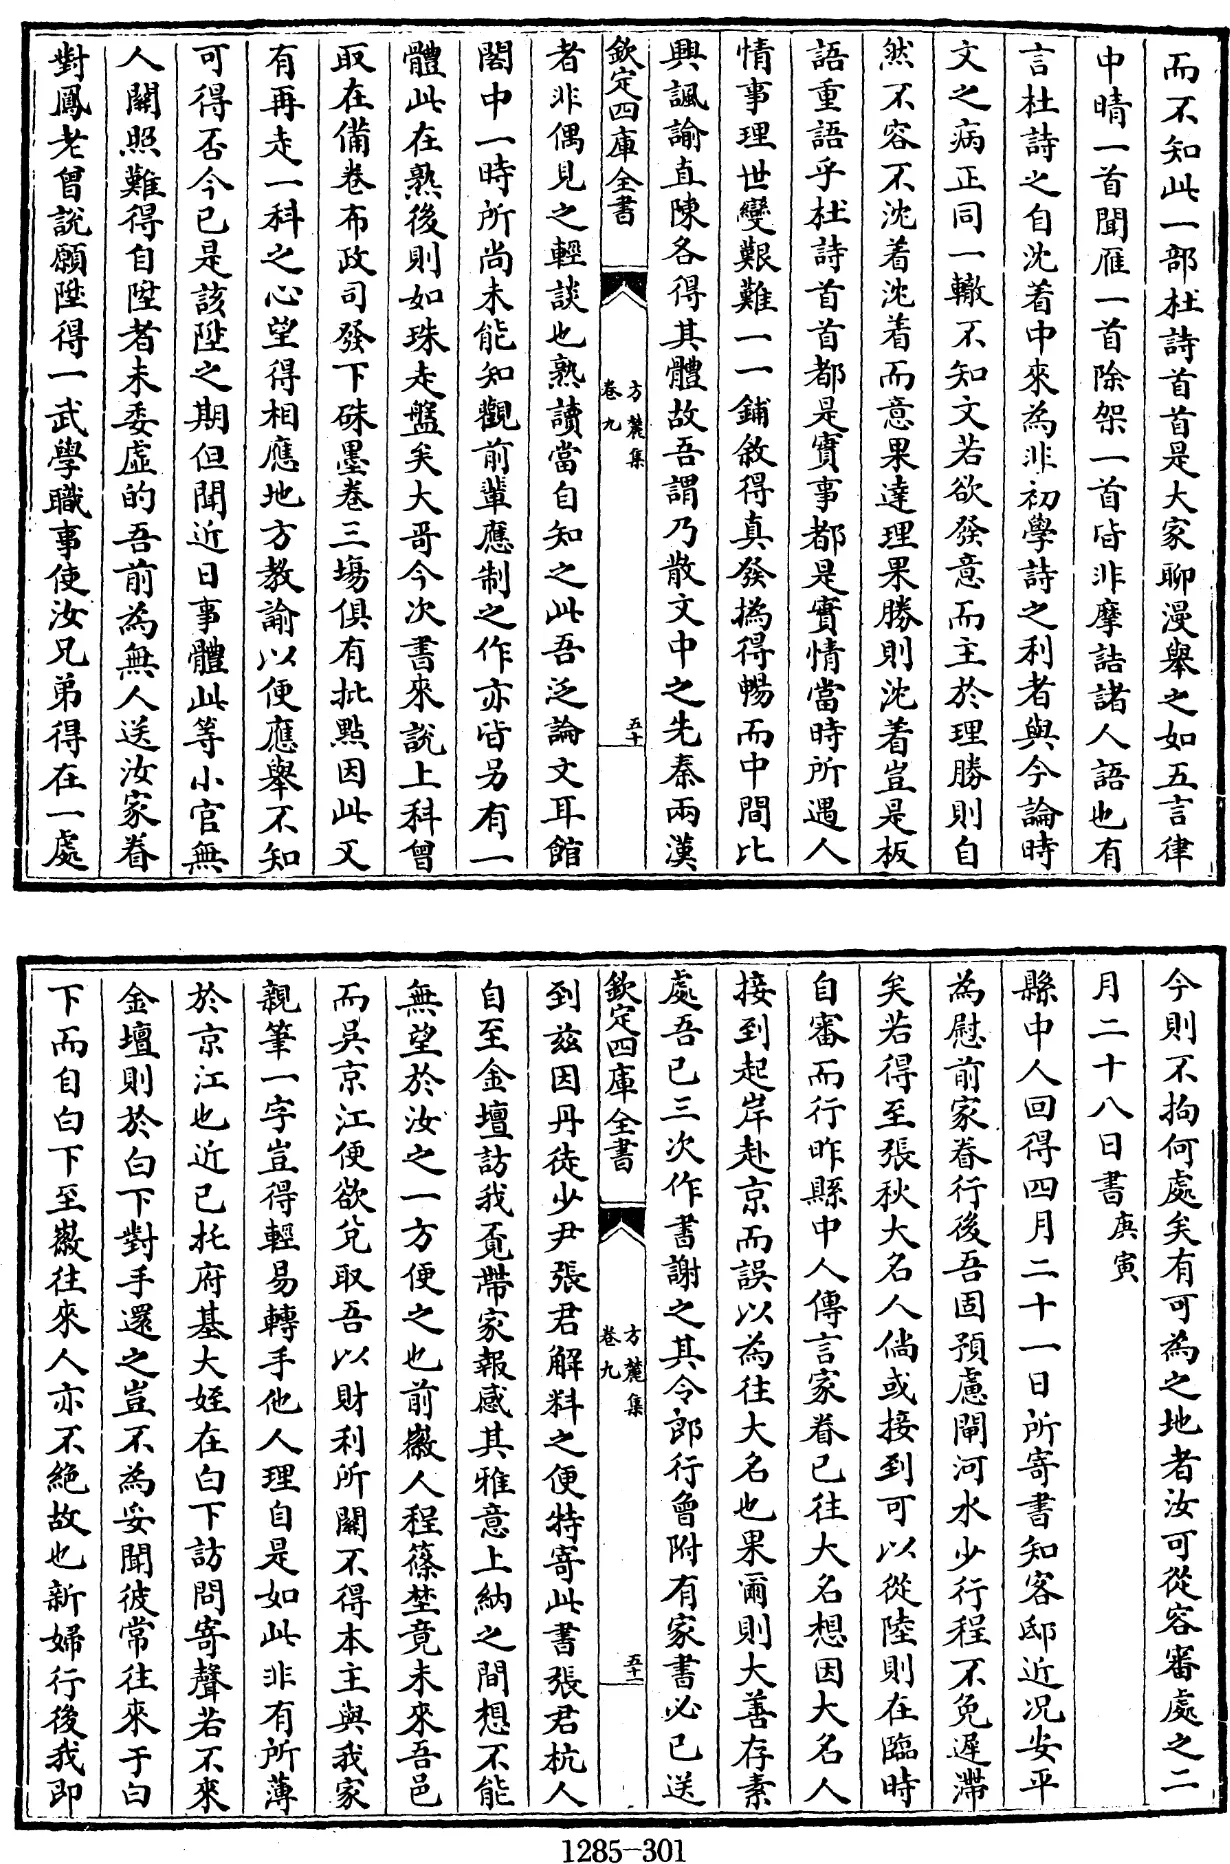 而不知此一部杜詩首首是大家聊漫舉之如五言律
中晴一首聞雁一首除架一首皆非摩詰諸人語也有
言杜詩之自沈着中來為非初學詩之利者與今論時
文之病正同一轍不知文若欲發意而主於理勝則自
然不容不沈着沈着而意果達理果勝則沈着豈是板
語重語乎杜詩首首都是實事都是實情當時所遇人
情事理世變艱難一一鋪敘得真發撝得暢而中間比
興諷諭直陳各得其體故吾謂乃散文中之先秦兩漢
欽定四庫全書
方麓集
卷九
五十
者非偶見之輕談也熟讀當自知之此吾泛論文耳館
閣中一時所尚未能知觀前輩應制之作亦皆另有一
體此在熟後則如珠走盤矣大哥今次書來說上科曾
取在備卷布政司發下硃墨卷三場俱有批點因此又
有再走一科之心望得相應地方教諭以便應舉不知
可得否今已是該陞之期但聞近日事體此等小官無
人關照難得自陞者未委虛的吾前為無人送汝家眷
對鳳老曾說願陞得一武學職事使汝兄弟得在一處
今則不拘何處矣有可為之地者汝可從容審處之二
月二十八日書庚寅
縣中人回得四月二十一日所寄書知客邸近况安平
為慰前家眷行後吾固預慮閘河水少行程不免遲滯
矣若得至張秋大名人倘或接到可以從陸則在臨時
自審而行昨縣中人傳言家眷已往大名想因大名人
接到起岸赴京而誤以為往大名也果爾則大善存素
處吾已三次作書謝之其令郎行曾附有家書必已送
欽定四庫全書
方麓集
卷九
五十一
到兹因丹徒少尹張君解料之便特寄此書張君杭人
自至金壇訪我覓帶家報感其雅意上納之間想不能
無望於汝之一方便之也前徽人程篠埜竟未來吾邑
而吳京江便欲兌取吾以財利所關不得本主與我家
親筆一字豈得輕易轉手他人理自是如此非有所薄
於京江也近已托府基大姪在白下訪問寄聲若不來
金壇則於白下對手還之豈不為妥聞彼常往來于白
下而自白下至徽往來人亦不絕故也新婦行後我即
1285-301